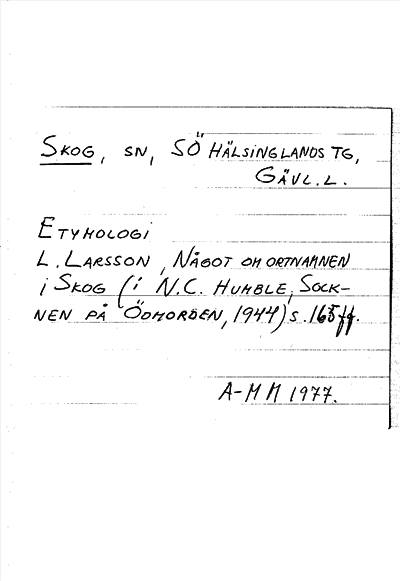 SKOG, SN, SÖ HÄLSINGLANDS TG,
GÄVL.L.
ETYMOLOGI
L. LARSSON, NÅGOT OM ORTNAMNEN
i SKOG (i N.C. HUMBLE, SOCK-
NEN PÅ ÖDMORDEN, 1944) s. 165 ff.
A-M M 1977.